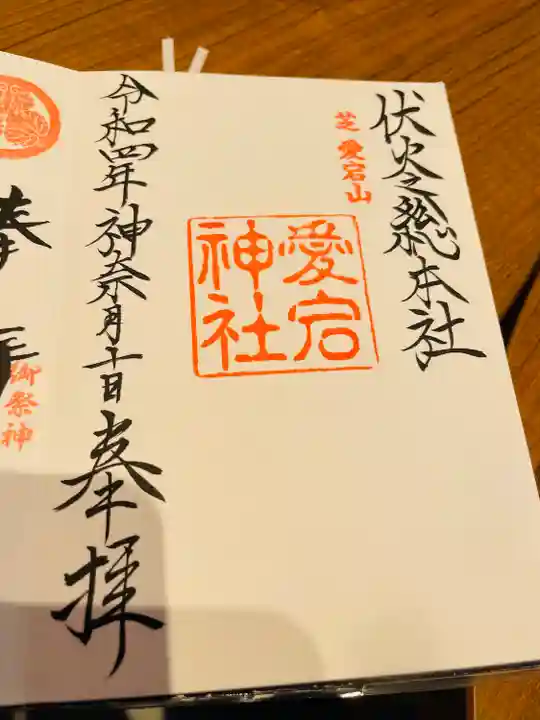 伏火之総本社
芝 愛宕山
愛宕
神社
令和四年神奈月十日
奉拝
奉拝
御祭神